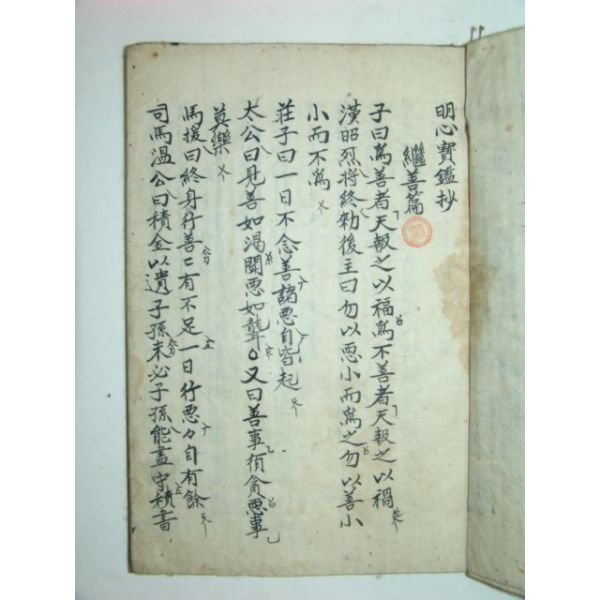 明心寶鑑抄
繼善篇
子曰爲善者天報之以福爲不善者天報之以禍
漢昭烈将終勅後主曰勿以惡小而爲之勿以善小
小而不爲
荘子曰一日不念善諸惡自皆起
太公曰見善如渴聞惡如聾○又曰善事須貪惡事
莫樂
馬援曰終身行善〻有不足一日行惡々自有餘
司馬溫公曰積金以遺子孫未必子孫能盡守積書